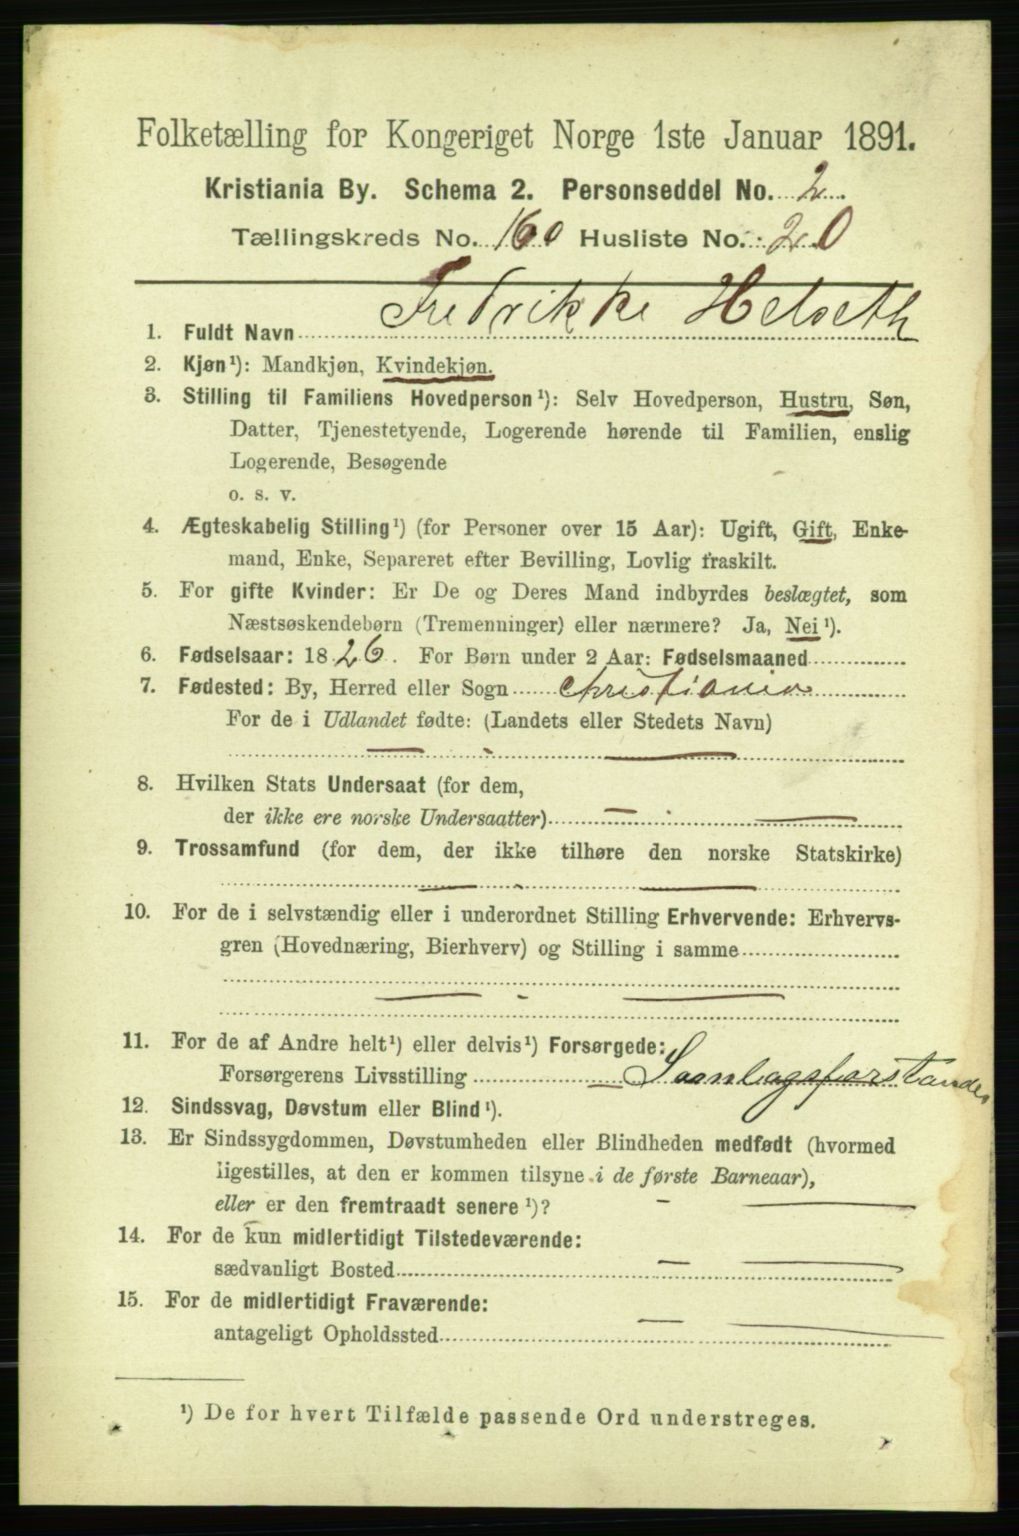 Folketælling for Kongeriget Norge 1ste Januar 1891.
Kristiania By. Schema 2. Personseddel No. 2.
Tællingskreds No. 160 Husliste No. 20
1. Fuldt Navn Fredrikke Helseth
2. Kjøn¹): Mandkjøn, Kvindekjøn.
3. Stilling til Familiens Hovedperson¹): Selv Hovedperson, Hustru, Søn,
Datter, Tjenestetyende, Logerende hørende til Familien, enslig
Logerende, Besøgende
o. s. v.
4. Ægteskabelig Stilling¹) (for Personer over 15 Aar): Ugift, Gift, Enke-
mand, Enke, Separeret efter Bevilling, Lovlig fraskilt.
5. For gifte Kvinder: Er De og Deres Mand indbyrdes beslægtet, som
Næstsøskendebørn (Tremenninger) eller nærmere? Ja, Nei¹).
6. Fødselsaar: 1826. For Børn under 2 Aar: Fødselsmaaned
7. Fødested: By, Herred eller Sogn Christiania
For de i Udlandet fødte: (Landets eller Stedets Navn)
8. Hvilken Stats Undersaat (for dem,
der ikke ere norske Undersaatter)
9. Trossamfund (for dem, der ikke tilhøre den norske Statskirke)
10. For de i selvstændig eller i underordnet Stilling Erhvervende: Erhvervs-
gren (Hovednæring, Bierhverv) og Stilling i samme
11. For de af Andre helt¹) eller delvis¹) Forsørgede:
Forsørgerens Livsstilling Samlagsforstander
12. Sindssvag, Døvstum eller Blind¹).
13. Er Sindssygdommen, Døvstumheden eller Blindheden medfødt (hvormed
ligestilles, at den er kommen tilsyne i de første Barneaar),
eller er den fremtraadt senere¹)?
14. For de kun midlertidigt Tilstedeværende:
sædvanligt Bosted
15. For de midlertidigt Fraværende:
antageligt Opholdssted
¹) De for hvert Tilfælde passende Ord understreges.